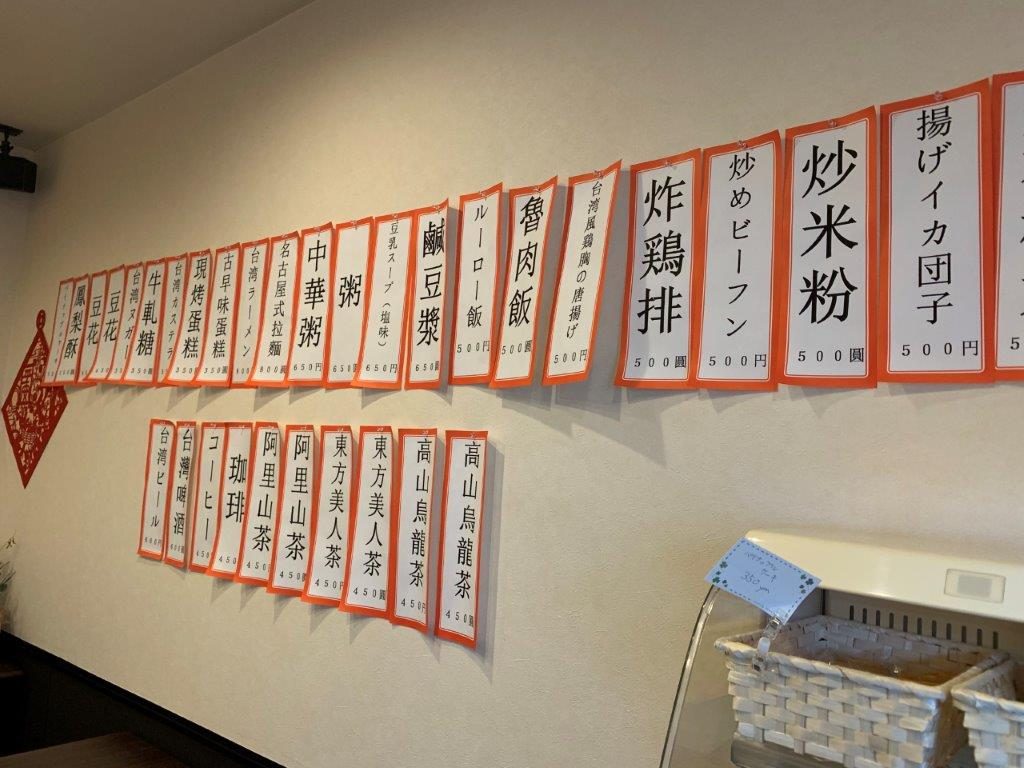 揚げイカ団子
500円
炒米粉
500圓
炒めビーフン
500円
炸鶏排
500圓
台湾風鶏胸の唐揚げ
500円
魯肉飯
500圓
ルーロー飯
500円
鹹豆漿
650圓
豆乳スープ(塩味)
650円
粥
650圓
中華粥
650円
名古屋式拉麵
800圓
台湾ラーメン
古早味蛋糕
350圓
現烤蛋糕
350圓
台湾カステラ
牛軋糖
350圓
台湾ヌガー
豆花
豆花
鳳梨酥
高山烏龍茶
450圓
高山烏龍茶
450円
東方美人茶
450圓
東方美人茶
450円
阿里山茶
450圓
阿里山茶
450円
珈琲
450
コーヒー
450
台灣啤酒
600圓
台湾ビール
600円
パイナップル
ケーキ
350yen